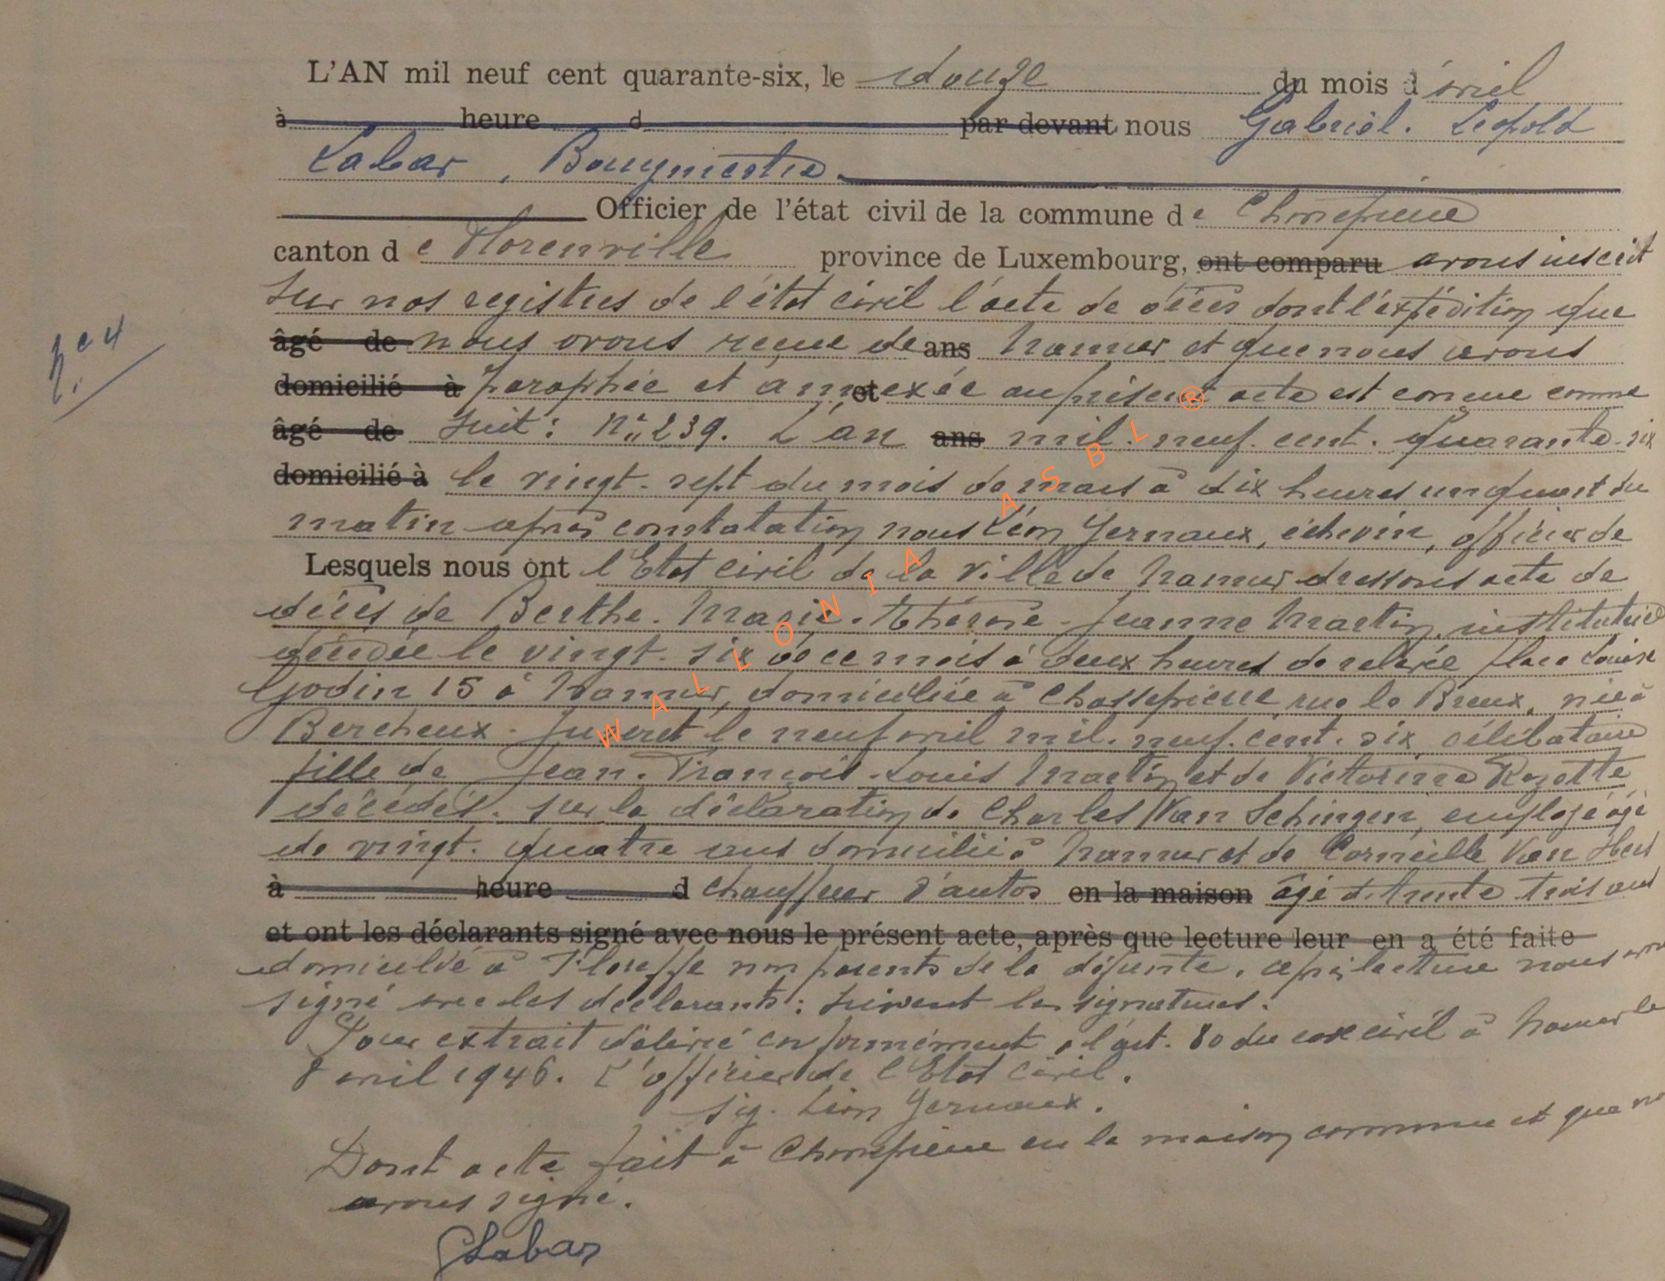 L'AN mil neuf cent quarante-six, le douze du mois d'avril
à heure d par devant nous Gabriel. Léopold
Labar, Bourgmestre.
Officier de l'état civil de la commune de Chassepierre
canton de Florenville province de Luxembourg, ont comparu avons inscrit
sur nos registres de l'état civil l'acte de décès dont l'expédition que
âgé de nous avons reçue de ans Namur et que nous avons
domicilié à paraphée et annexée et au présent acte est conçue comme
âgé de suit : N° 239. L'an ans mil. neuf. cent. quarante-six
domicilié à le vingt-sept du mois de mars à dix heures un quart du
matin après constatation nous Léon Gernaux, échevin, officier de
Lesquels nous ont l'Etat civil de la Ville de Namur dressons acte de
décès de Berthe. Marie. Thérèse. Jeanne Martin, institutrice
décédée le vingt-six de ce mois à deux heures de relevée place Louise
Godin 15 à Namur, domiciliée à Chassepierre rue la Breux, née à
Bercheux-Juseret le neuf avril mil. neuf. cent. six, célibataire
fille de Jean. François. Louis Martin et de Victorine Rozette
décédés. Sur la déclaration de Charles Van Schingen, employé âgé
de vingt-quatre ans domicilié à Namur et de Corneille Van
à heure d chauffeur d'autos en la maison âgé de trente trois ans
et ont les déclarants signé avec nous le présent acte, après que lecture leur en a été faite
domicilié à Floreffe non parents de la défunte. après lecture nous avons
signé avec les déclarants : suivent les signatures.
Pour extrait délivré conformément à l'art. 80 du code civil à Namur le
8 avril 1946. L'officier de l'Etat Civil.
sig. Léon Gernaux.
Dont acte fait à Chassepierre en la maison commune et que nous
avons signé.
GLabar
N. 4
WALLONIA ASBL ®